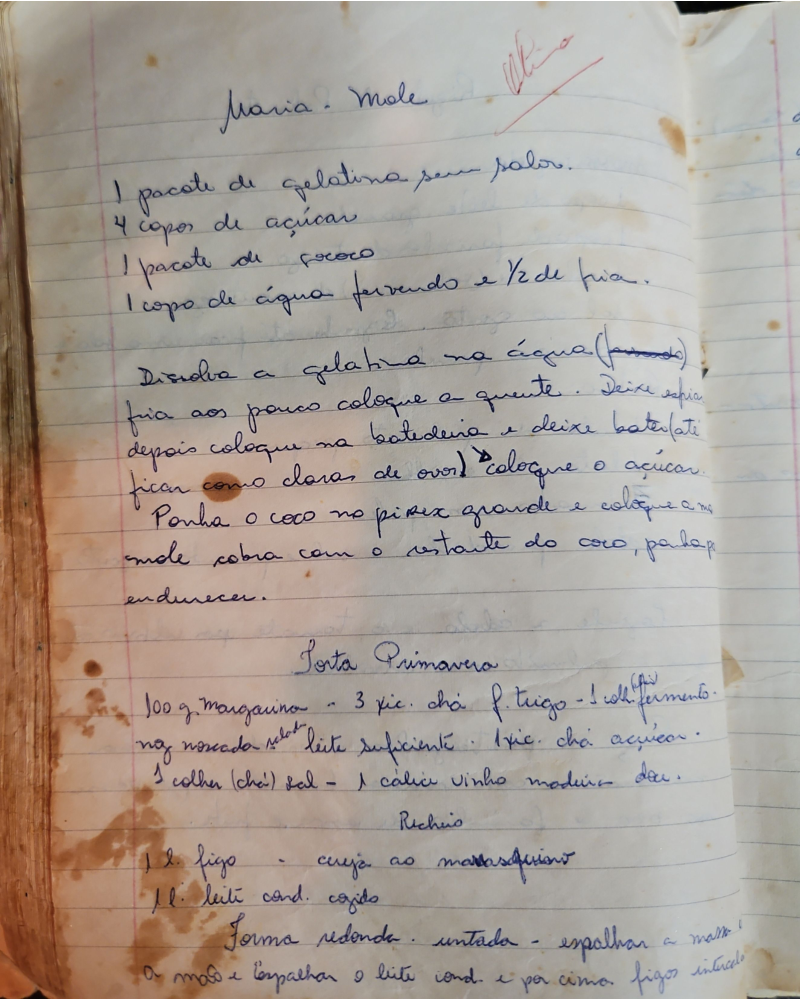 Ótimo
Maria - Mole
1 pacote de gelatina sem sabor.
4 copos de açúcar
1 pacote de cococo
1 copo de água fervendo e 1/2 de fria.
Dissolva a gelatina na água (fervendo)
fria aos pouco coloque a quente. Deixe esfria
depois coloque na batedeira e deixe bater (até
ficar como claras de ovos) coloque o açúcar.
Ponha o coco no pirex grande e coloque a ma
mole cobra com o restante do coco, ponha p
endurecer.
Torta Primavera
100 g. Margarina - 3 xic. chá f. trigo - 1 colh. fermento.
noz noscada ralada leite suficiente. 1 xic. chá açúcar.
1 colher (chá) sal - 1 cálice vinho madeira doce.
Recheio
1 l. figo - cereja ao marasquino
1 l. leite cond. cozido
Forma redonda. untada - espalhar a massa c
a mão e espalhar o leite cond. e por cima figos intercala